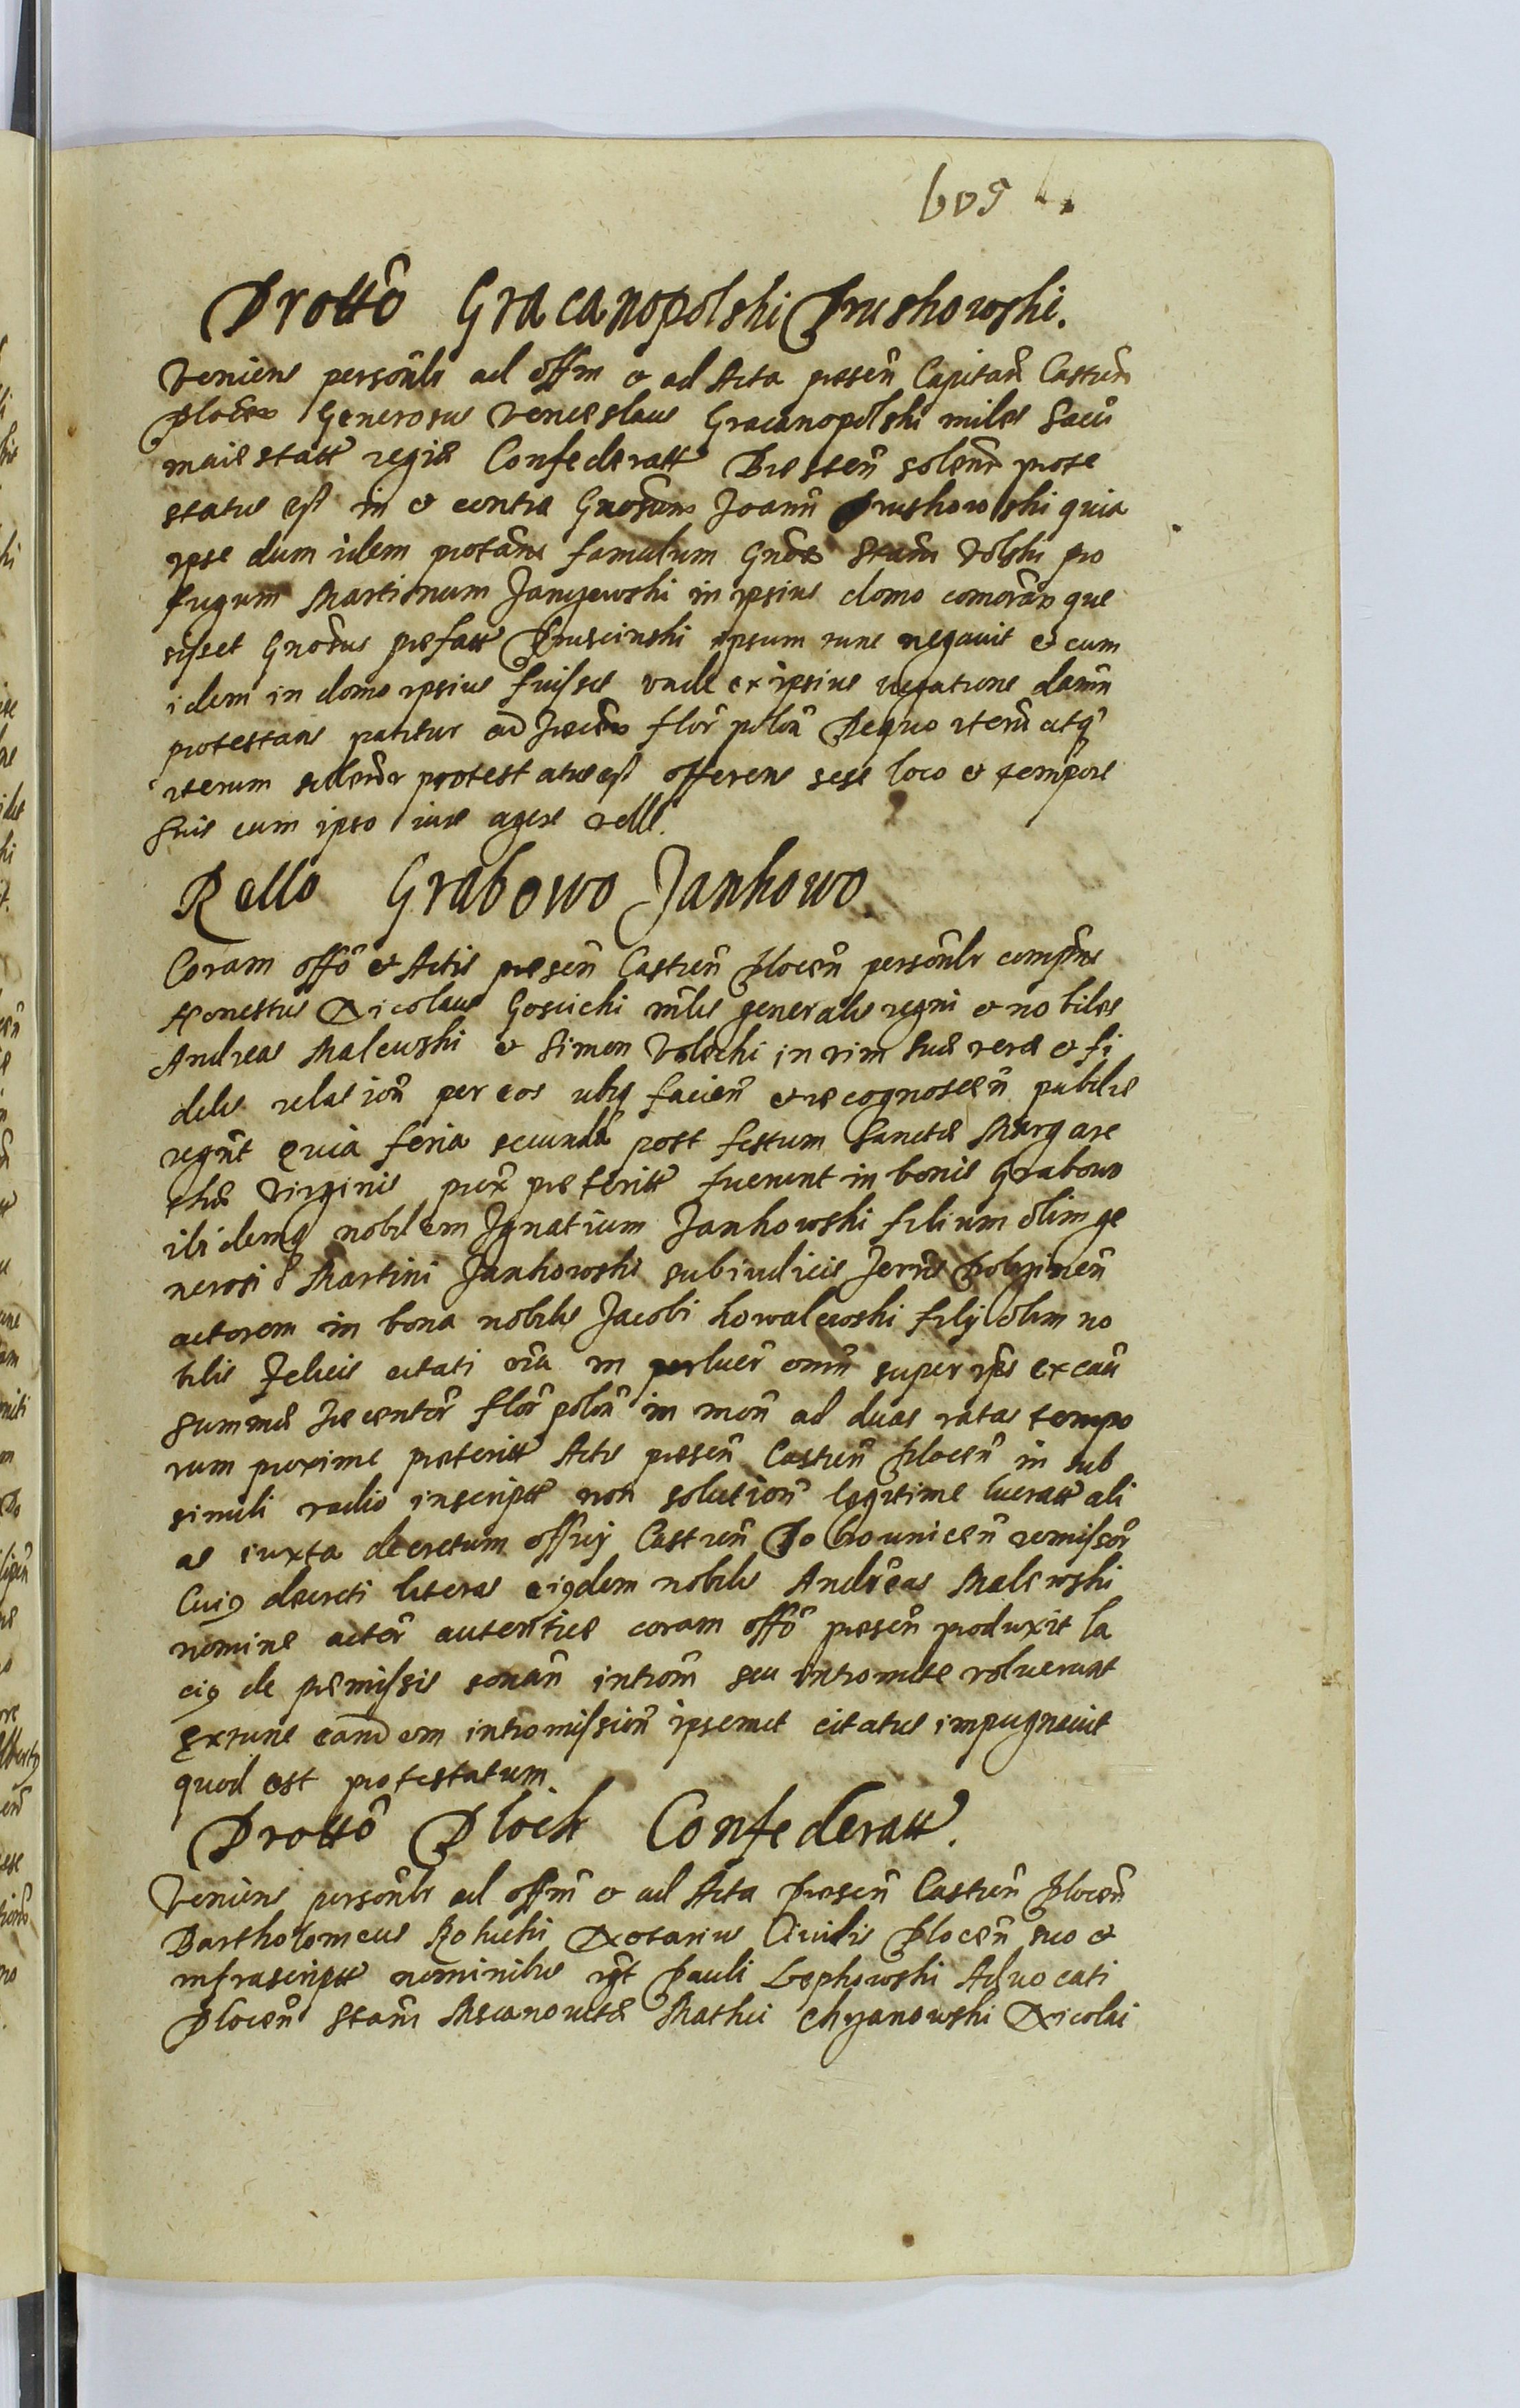 609
Prottõ Gracanopolski Pruskowski.
Veniens personlr ad offm et ad Acta presen Capitan Castren
plocen Generosus Venceslaus Gracanopolski miles Sacrę
maiestatt regię Confederatt Bresten solenr prote
status est in et contra Gnosum Joann Pruskowski quia
ipse dum idem protans famulum Gnosi Stani Volski pro
fugum Martinum Janczewski in ipsius domo comoran que
sisset Gnosus prefatt Pruscinski ipsum tunc negauit et cum
idem in domo ipsius fuisset vnde ex ipsius negatione damn
protestans patitur ad flor polon Dequo iterũ atq
iterum solenr protestatus est offerens sese loco et tempore
suis cum ipso iure agere velle.
Rello Grabowo Jankowo.
Coram offõ et Actis presen Castren plocen personlr comprns
Honestus Nicolaus Goscicki mlis generalis regni et nobiles
Andreas Malewski et Simon Volscki in vim suę verę et fi
delis relation per eos ubiq facien et recognoscen publice
regnt Quia feria secunda post festum Sanctę Margare
thę Virginis prox preteritt fuerunt in bonis Grabowo
ibidemq nobilem Ignatium Jankowski filium olim ge
nerosi Martini Jankowski subiudicis Terrę Dobrzinen
actorem in bona nobilis Jacobi Kowalewski filij olim no
bilis Felicis citati oĩa in perluer omn super ips ex cau
summę flor polon in mon ad duas ratas tempo
rum proxime preteritt Actis presen Castren plocen in sub
simili vadio inscriptt non solution legitime lucratt ali
as iuxta decretum officij Castren Bobrounicen remissor
Cuiq decreti literas eiqdem nobilis Andreas Malewski
nomine actor autentice coram offõ presen produxit la
ciq de premissis sonan introm seu intromitte voluerunt
Extunc eandem intromission ipsemet citatus impugnauit
quod est protestatum.
Prottõ Plock Confederatt.
Veniens personlr ad offm et ad Acta presen Castren plocen
Bartholomeus Rokicki Notarius Ciuilis plocen suo et
infrascriptt nominibus vgt Pauli Lepkowski Aduocati
Plocen Stani Mathei Chyanowski Nicolai